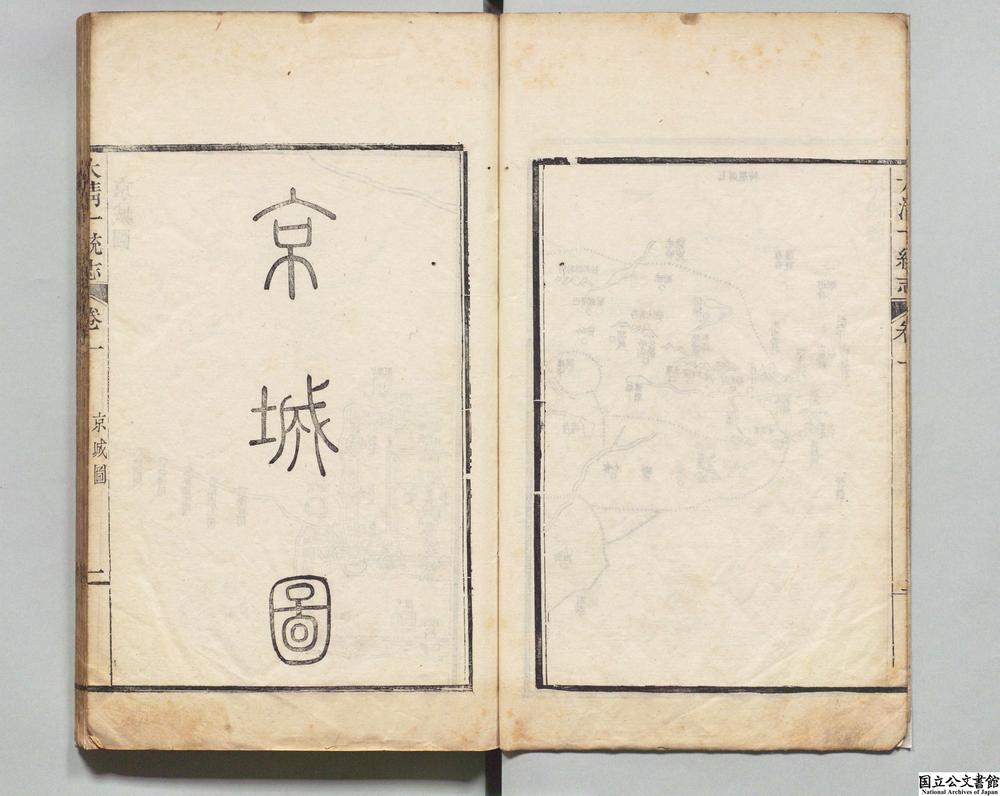 大清一統志 卷一
京城圖
大清一統志 卷一 京城圖 二
国立公文書館
National Archives of Japan